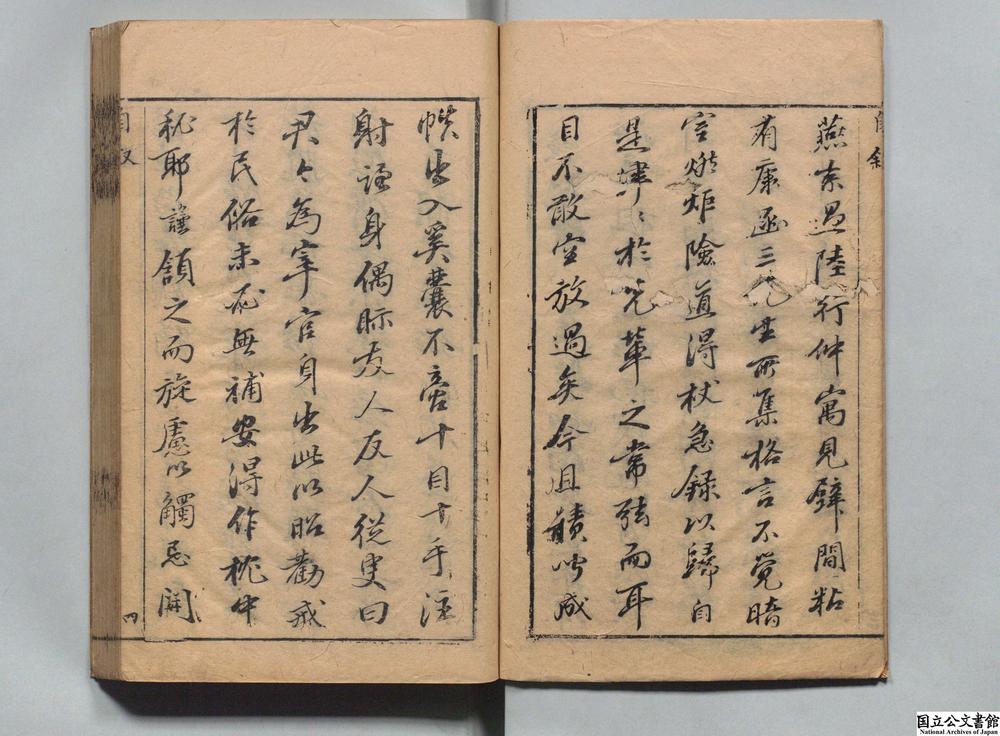 自叙
燕過陸行仲寓見壁間粘
有康函三先生所集格言不覺暗
室燃炬險道得杖急録以歸自
是於兒輩之常而耳
目不敢空放過矣今且積以成
帙出入奚囊不啻十目十手注
射身偶眎友人友人從叟曰
為宰官身出此以昭勸戒
於民俗未必無補安得作枕中
秘耶謹頷之而旋慮以觸忌開
自叙
四
国立公文書館
National Archives of Japan